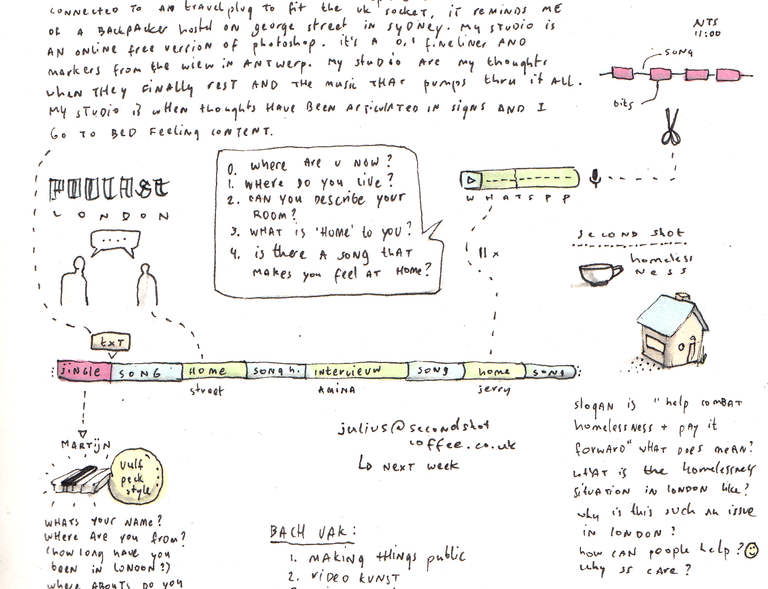 CONNECTED TO AN travelplug TO fit THE UK SOCKET, it REMINDS ME
OF A BACKPACKER hostel ON george street in SyDNEY. My STUDIO is
AN online free version of photoshop. it's A 0,1 fineliner AND
markers from the wiew in ANTwerp. My studio are my thoughts
when they finally rest AND the music THAT pumps thru it ALL.
My studio is when thoughts HAVE BEEN ARTiculated in signs AND I
Go to BED Feeling CONTENT.
NTS
11:00
SONG
bits
PODCAST
LONDON
....
0. WHERE ARE U NOW?
1. WHERE DO YOU LIVE?
2. CAN YOU DESCRIBE YOUR
ROOM?
3. WHAT is 'HOME' to you?
4. is there A SONG THAT
MAKES YOU feel AT HOME?
WHATSPP
11x
SECOND SHOT
homeless
NESS
txt
jingle
SONG
HOME
SONG h.
intervieuw
SONG
home
SONG
street
AMINA
jerry
julius@secondshot
coffee.co.uk
NEXT week
MARTijN
Vulf
peck
style
WHATS YOUR NAME?
WHERE ARE YOU from?
(how long have you
been in LONDON?)
WHERE ABOUTS DO YOU
BACH VAK:
1. MAKING THINGS public
2. VIDEO KUNST
slogAN is "help COMBAT
homelessness + pay it
forward" WHAT DOES MEAN?
WHAT is the homelessness
situation in london like?
why is this such an issue
in LONDON?
how CAN poople help?
why SS CARE?